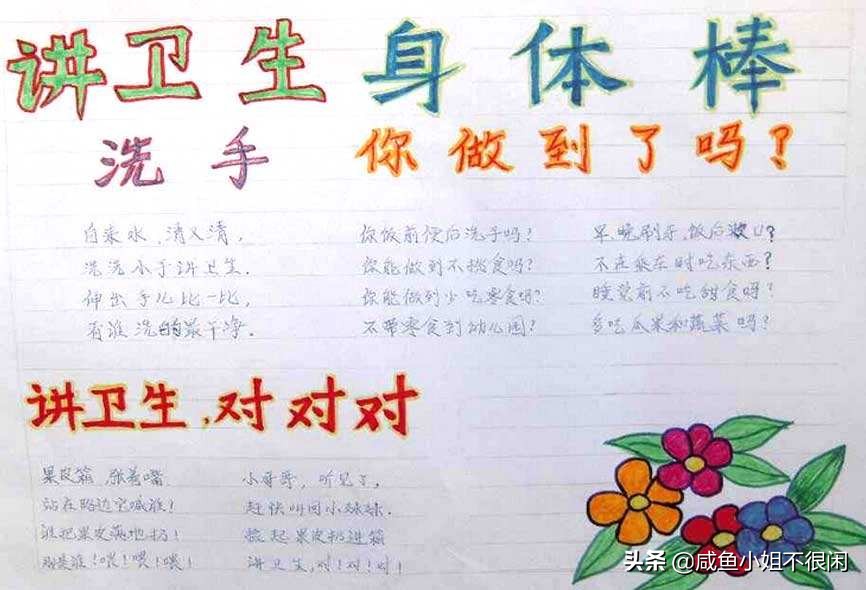 讲卫生 身体棒
洗手
自来水,清又清,
洗洗小手讲卫生.
伸出手儿比一比,
有谁洗的最干净.
你做到了吗?
你饭前便后洗手吗?
你能做到不挑食吗?
你能做到少吃零食吗?
不带零食到幼儿园?
早晚刷牙,饭后漱口?
不在乘车时吃东西?
睡觉前不吃甜食吗?
多吃瓜果和蔬菜吗?
讲卫生,对对对
果皮箱,张着嘴.
站在路边它喊谁!
谁把果皮满地扔!
谁!喂!喂!喂!
小哥哥,听见了,
赶快叫回小妹妹.
捡起果皮扔进箱
讲卫生,对!对!对!
头条 @咸鱼小姐不很闲